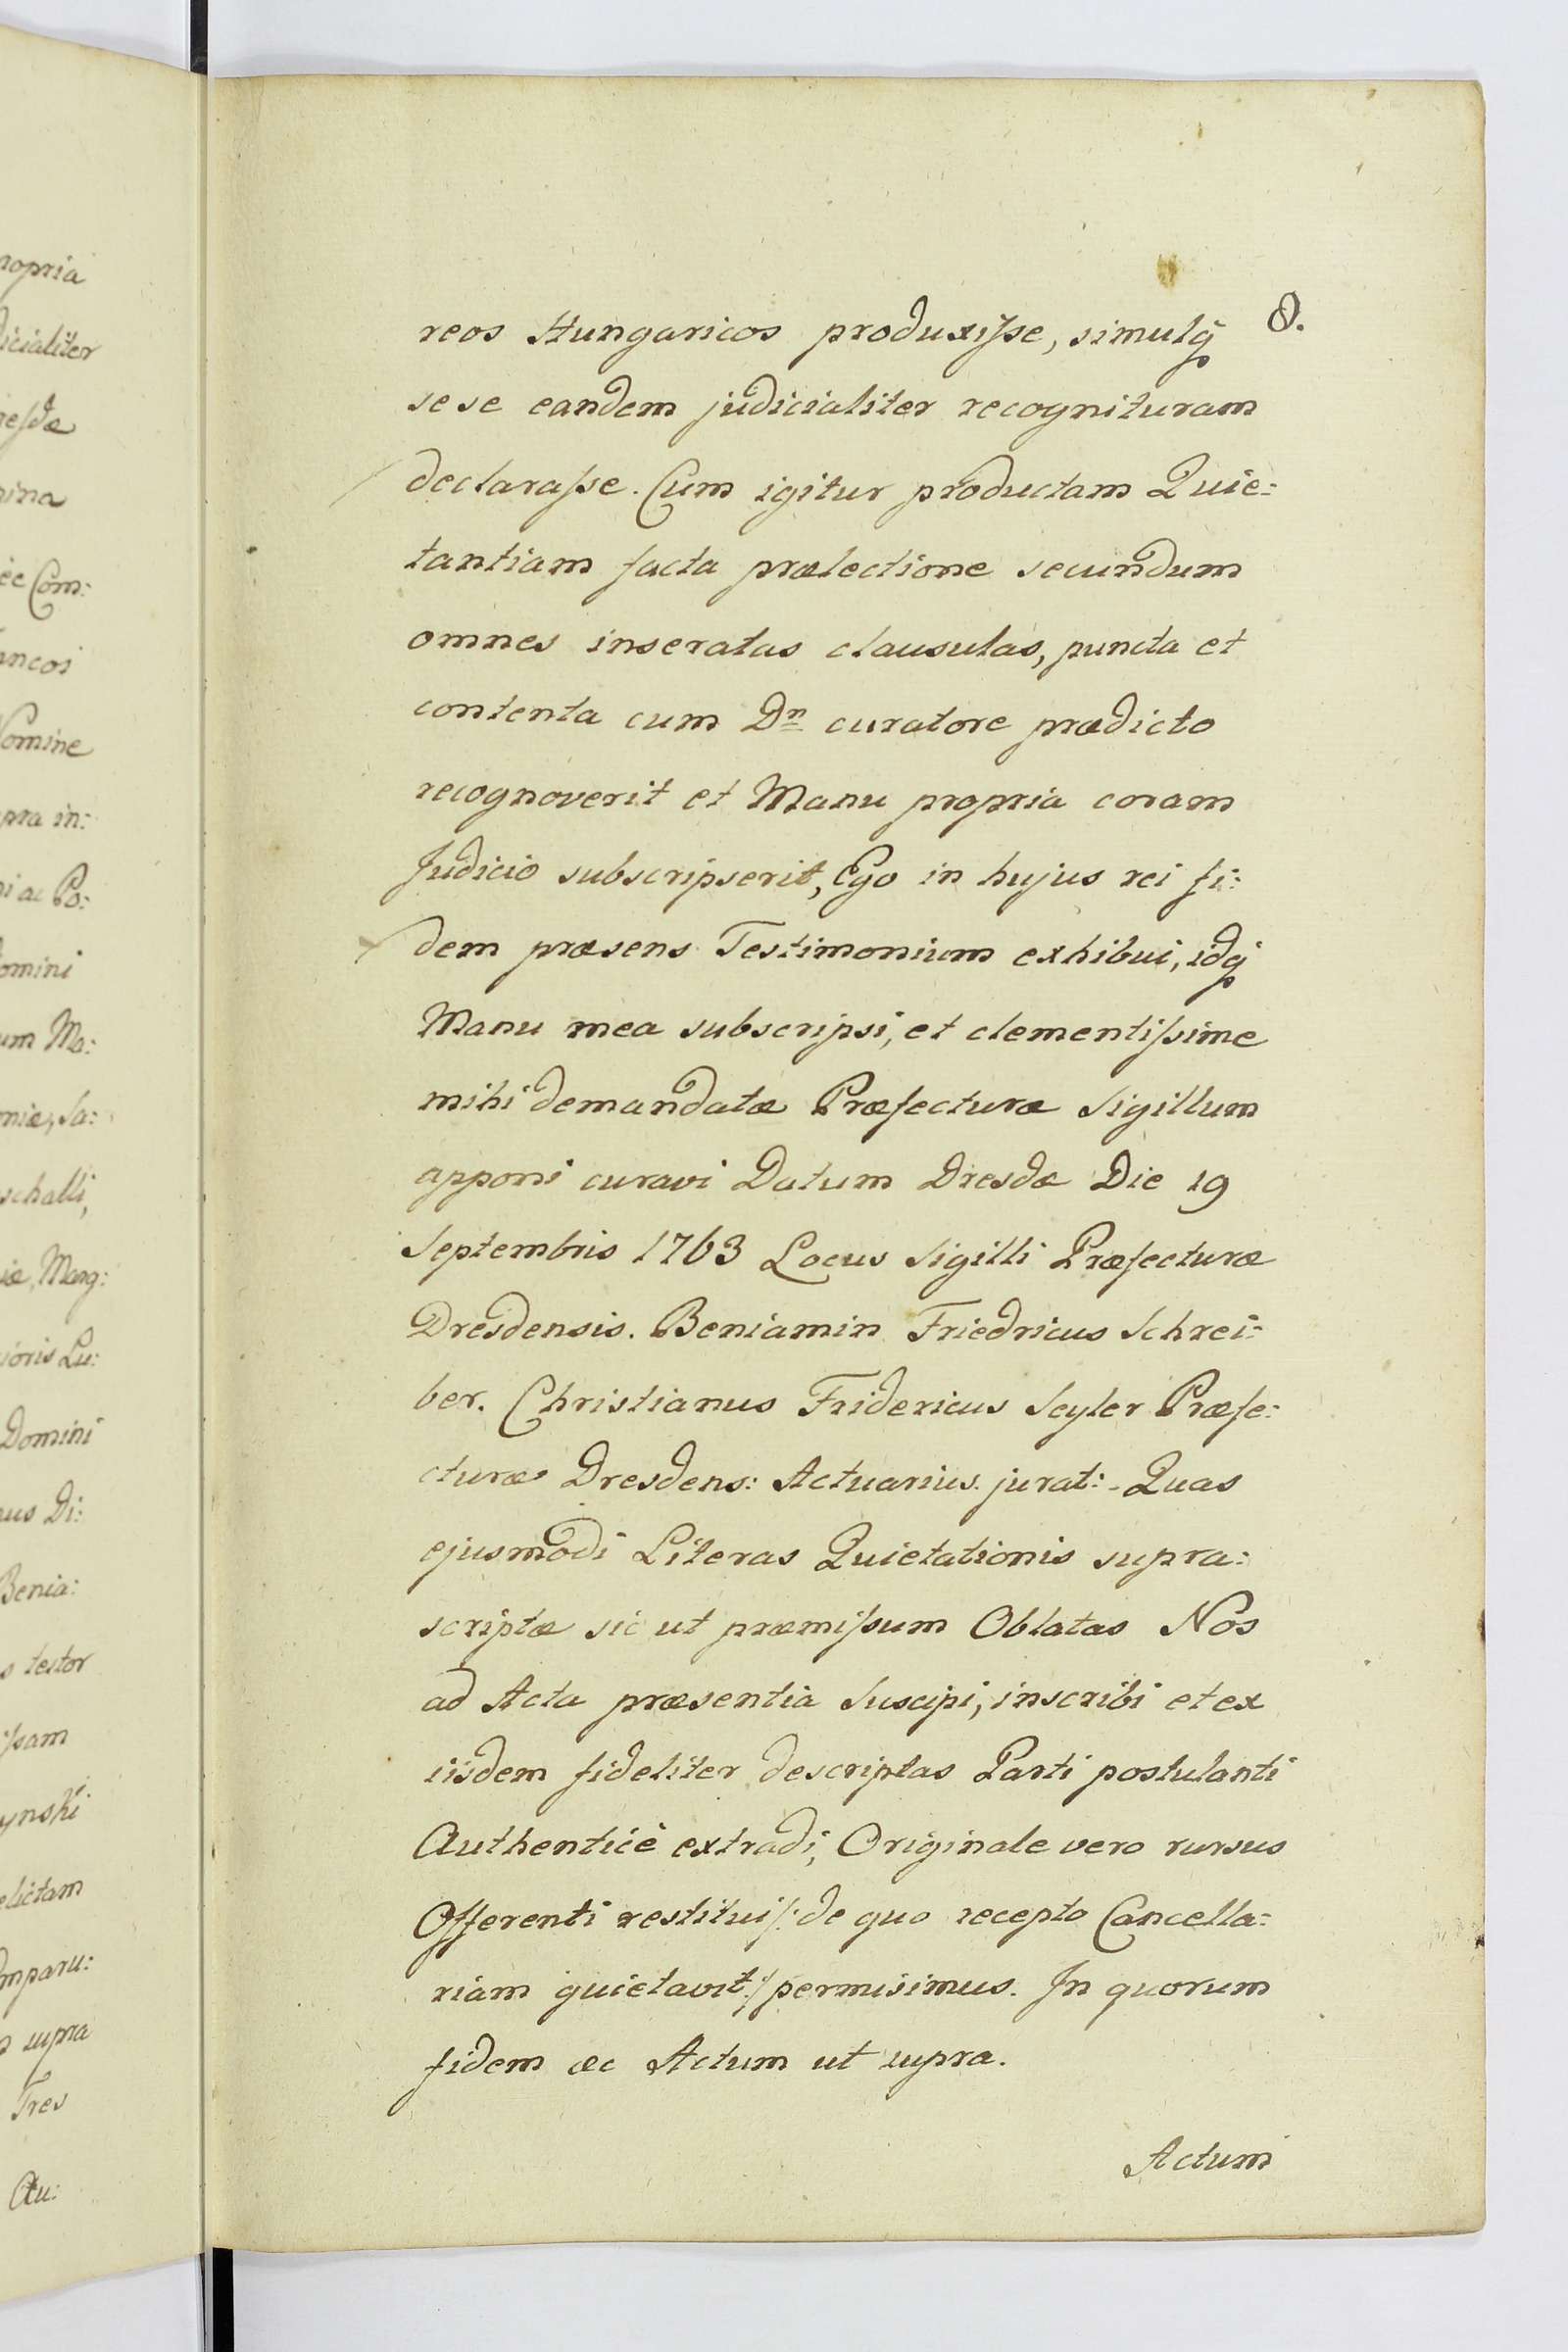 8.
reos Hungaricos produxiſse, simulq
sese eandem judicialiter recognituram
declaraſse. Cum igitur productam Quie:
tantiam facta prælectione secundum
omnes inseratas clausulas, puncta et
contenta cum Dn curatore prædicto
recognoverit et Manu propria coram
Judicio subscripserit, Ego in hujus rei fi:
dem præsens Testimonium exhibui, idq
Manu mea subscripsi, et clementiſsime
mihi demandatæ Præfecturæ Sigillum
apponi curavi Datum Dresdæ Die 19
Septembris 1763 Locus Sigilli Præfecturæ
Dresdensis. Beniamin Friedricus Schrei:
ber. Christianus Fridericus Seyler Præfe:
cturæ Dresdens: Actuarius jurat: - Quas
ejusmodi Literas Quietationis supra:
scriptæ sic ut præmiſsum Oblatas Nos
ad Acta præsentia Suscipi, inscribi et ex
iisdem fideliter descriptas Parti postulanti
Authenticè extradi, Originale vero rursus
Offerenti restitui /: de quo recepto Cancella:
riam quietavit :/ permisimus. In quorum
fidem æc Actum ut supra.
Actum
ropria
dicialiter
reſdæ
mina
ec Com:
ancos
Nomine
pra in:
ni ac Po:
Domini
um Ma:
niæ, Sa:
schalli,
iæ, Marg:
ioris Lu:
Domini
nus Di:
Benia:
s testor
iſsam
ynski
elictam
omparu:
supra
Tres
Au: